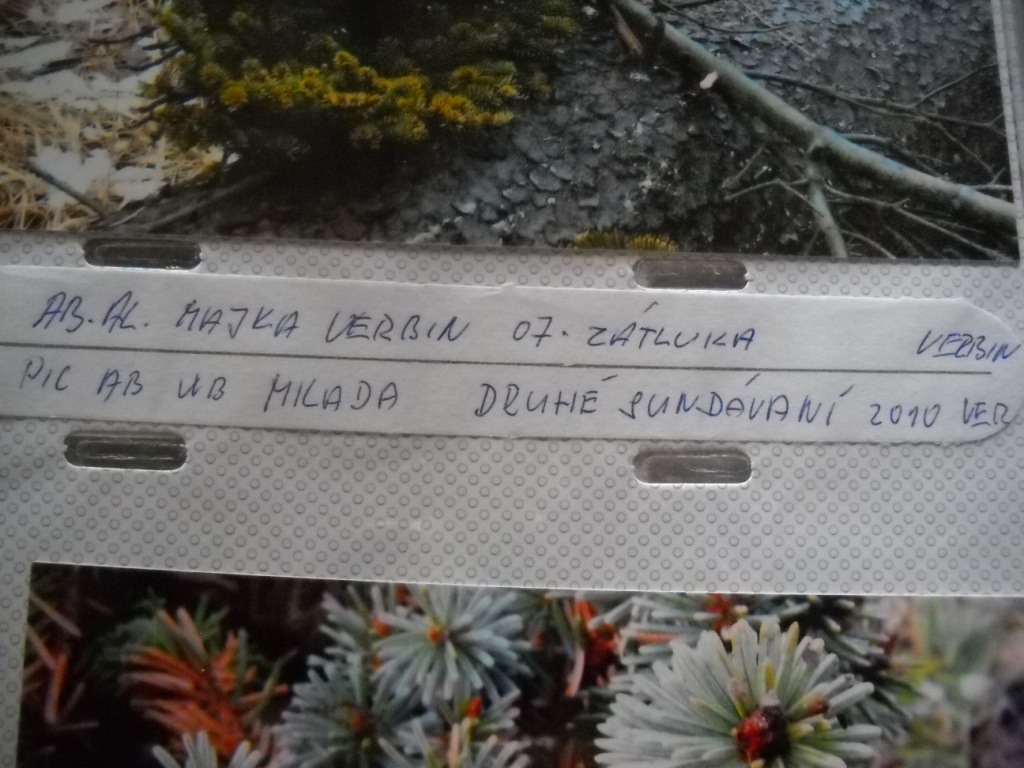 AB. AL. MAJKA VERBIN 07. ZÁTLUKA VERBIN
PIC AB WB MILADA DRUHÉ SUNDÁVANÍ 2010 VER